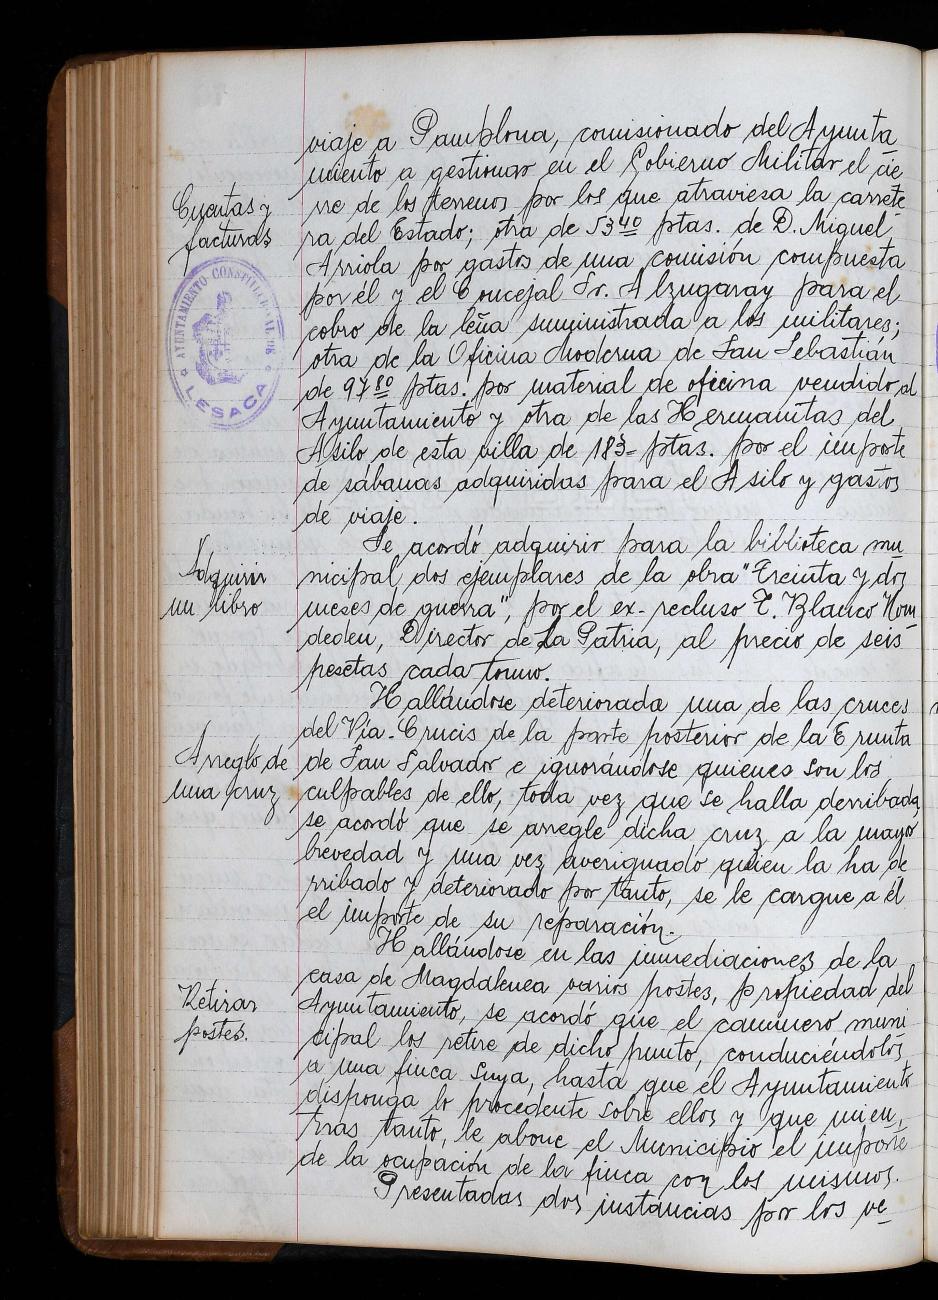 viaje a Pamplona, comisionado del Ayunta
miento a gestionar en el Gobierno Militar el cie
Cuentas y
facturas
rre de los terrenos por los que atraviesa la carrete-
ra del Estado; otra de 53 40 ptas. de D. Miguel
Arriola por gastos de una comisión compuesta
por él y el Concejal Sr. Alzugaray para el
cobro de la leña suministrada a los militares;
otra de la Oficina Moderna de San Sebastián
de 97 80 ptas. por material de oficina vendido al
Ayuntamiento y otra de las Hermanitas del
Asilo de esta villa de 183= ptas. por el importe
de sábanas adquiridas para el Asilo y gastos
de viaje.
AYUNTAMIENTO CONSTITUCIONAL DE
LESACA
Adquirir
un libro
Se acordó adquirir para la biblioteca mu
nicipal dos ejemplares de la obra "Treinta y dos
meses de guerra", por el ex-recluso T. Blanco Nom
dedeu, Director de La Patria, al precio de seis
pesetas cada tomo.
Arreglo de
una cruz
Hallándose deteriorada una de las cruces
del Vía-Crucis de la parte posterior de la Ermita
de San Salvador e ignorándose quienes son los
culpables de ello, toda vez que se halla derribada,
se acordó que se arregle dicha cruz a la mayor
brevedad y una vez averiguado quien la ha de
rribado y deteriorado por tanto, se le cargue a él
el importe de su reparación.-
Retirar
postes.
Hallándose en las inmediaciones de la
casa de Magdalenea varios postes, propiedad del
Ayuntamiento, se acordó que el caminero muni
cipal los retire de dicho punto, conduciéndolos
a una finca suya, hasta que el Ayuntamiento
disponga lo procedente sobre ellos y que mien-
tras tanto, le abone el Municipio el importe
de la ocupación de la finca con los mismos.
Presentadas dos instancias por los ve-